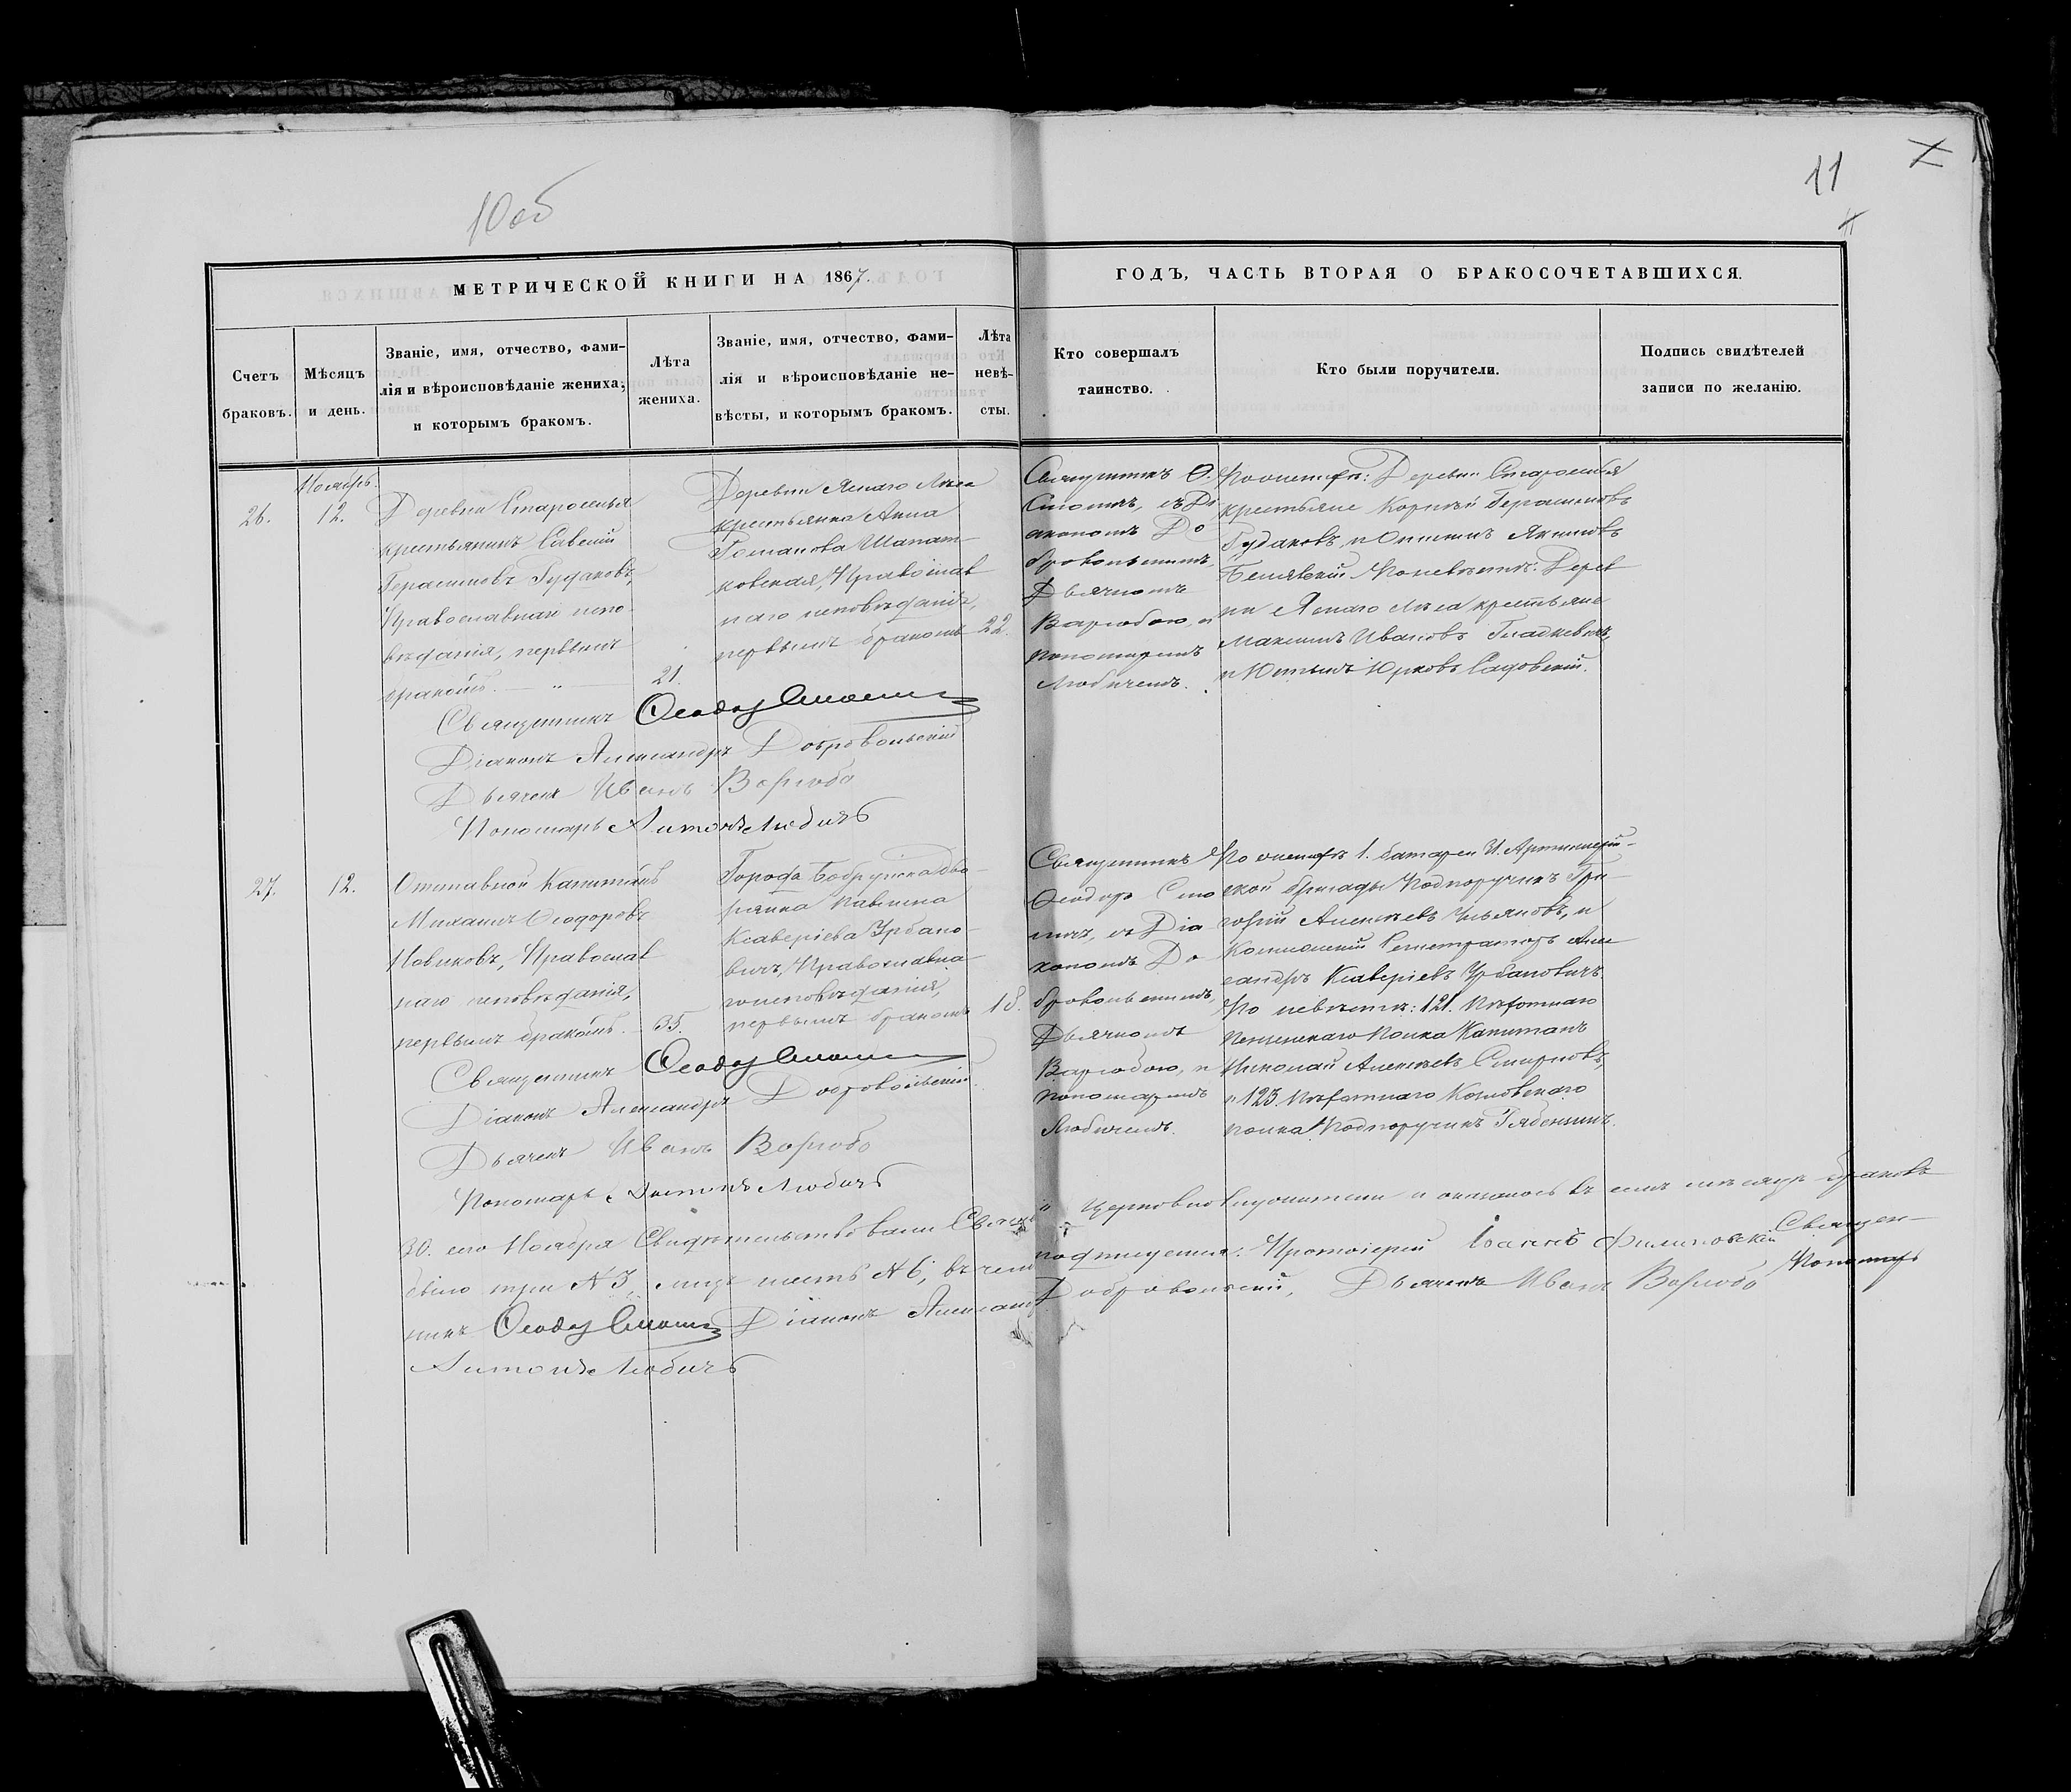 10 об
11
МЕТРИЧЕСКОЙ КНИГИ НА 1867.
ГОДЪ, ЧАСТЬ ВТОРАЯ О БРАКОСОЧЕТАВШИХСЯ.
Счетъ
браковъ.
Мѣсяцъ
и день.
Званіе, имя, отчество, фами-
лія и вѣроисповѣданіе жениха,
и которымъ бракомъ.
Лѣта
жениха.
Званіе, имя, отчество, фами-
лія и вѣроисповѣданіе не-
вѣсты, и которымъ бракомъ.
Лѣта
невѣ-
сты.
Кто совершалъ
таинство.
Кто были поручители.
Подпись свидѣтелей
записи по желанію.
26.
Ноябрь.
12.
Деревни Староселья
крестьянинъ Савелій
Герасимовъ Будаковъ,
Православнаго испо
вѣданія, первымъ
бракомъ. — " —
21.
Деревни Яснаго Лѣса
крестьянка Анна
Романова Шапат
ковская, Православ
наго исповѣданія,
первымъ бракомъ
22.
Священникъ Ѳ.
съ Ді
акономъ До
бровольскимъ,
Дьячкомъ
Варгобою, и
пономаремъ
Любичемъ.
По женихѣ: Деревни Староселья
крестьяне Корнѣй Герасимовъ
Будаковъ, и Якимовъ
По невѣстѣ: Дерев
ни Яснаго Лѣса крестьяне
Максимъ Ивановъ Гладкевичъ,
и Юрковъ Садовскій.
Священникъ Ѳеодоръ
Діаконъ Александръ Добровольскій
Дьячекъ Иванъ Варгобо
Пономарь Антонъ Любичъ
27.
12.
Отставной Капитанъ
Михаилъ Ѳеодоровъ
Новиковъ, Православ
наго исповѣданія,
первымъ бракомъ. —
35.
Города Бобруйска дво-
рянка Павлина
Ксаверіева Урбано-
вичъ, Православна-
го исповѣданія,
первымъ бракомъ
18.
Священникъ
Ѳеодоръ
съ Діа
кономъ До
бровольскимъ,
Дьячкомъ
Варгобою, и
пономаремъ
Любичемъ.
По женихѣ 1. батареи 31. Артиллерій-
ской бригады Подпоручикъ Гри-
горій Алексѣевъ Ульяновъ, и
Коллежскій Регистраторъ Алек
сандръ Ксаверіевъ Урбановичъ.
По невѣстѣ: 121. Пѣхотнаго
Пензенскаго Полка Капитанъ
Николай Алексѣевъ Смирновъ,
и 123. Пѣхотнаго Козловскаго
полка Подпоручикъ Рябенкинъ.
Священникъ Ѳеодоръ
Діаконъ Александръ Добровольскій
Дьячекъ Иванъ Варгобо
Пономарь Антонъ Любичъ
30. сего Ноября Свидѣтельствовали и оказалось въ семъ мѣсяцѣ браковъ
было три № 3, лицъ шесть № 6, въ чемъ подписуемся: Протоіерей Іоаннъ Священ-
никъ Ѳеодоръ Діаконъ Александръ Добровольскій, Дьячекъ Иванъ Варгобо Пономарь
Антонъ Любичъ